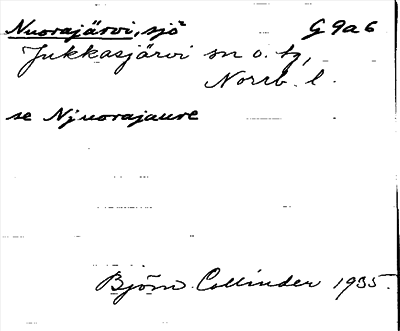 Nuorajärvi, sjö G9a6
Jukkasjärvi sn o. tg,
Norrb. l.
se Njuorajaure
Björn Collinder 1935.